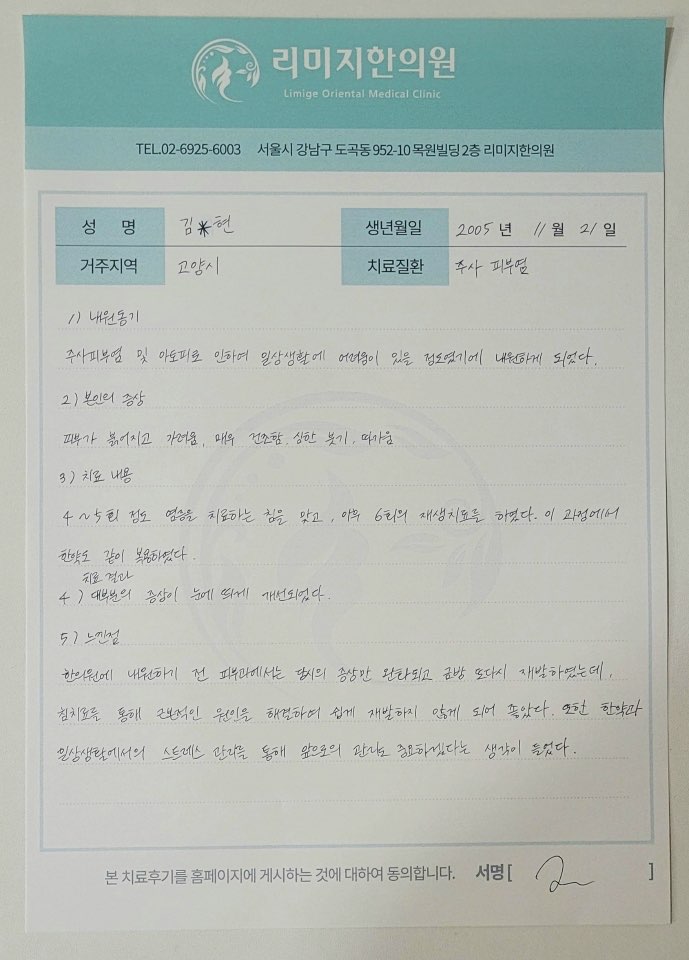 리미지한의원
Limige Oriental Medical Clinic
TEL.02-6925-6003 서울시 강남구 도곡동 952-10 목원빌딩 2층 리미지한의원
성 명 김*현 생년월일 2005 년 11 월 21 일
거주지역 고양시 치료질환 주사 피부염
1) 내원동기
주사피부염 및 아토피로 인하여 일상생활에 어려움이 있을 정도였기에 내원하게 되었다.
2) 본인의 증상
피부가 붉어지고 가려움, 매우 건조함, 심한 붓기, 따가움
3) 치료 내용
4~5회 정도 염증을 치료하는 침을 맞고, 이후 6회의 재생치료를 하였다. 이 과정에서
한약도 같이 복용하였다.
치료 결과
4) 대부분의 증상이 눈에 띄게 개선되었다.
5) 느낀점
한의원에 내원하기 전 피부과에서는 당시의 증상만 완화되고 금방 또다시 재발하였는데,
침치료를 통해 근본적인 원인을 해결하여 쉽게 재발하지 않게 되어 좋았다. 또한 한약과
일상생활에서의 스트레스 관리를 통해 앞으로의 관리도 중요하겠다는 생각이 들었다.
본 치료후기를 홈페이지에 게시하는 것에 대하여 동의합니다. 서명 [ ]